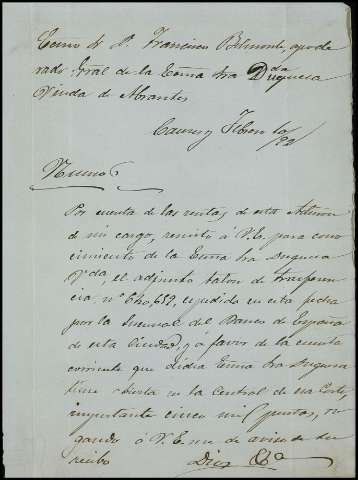 Excmo Sr D. Francisco Belmonte, apode
rado Gral de la Excma Sra Duquesa
Viuda de Abrantes
Caceres y Febrero 10
/92
Por cuenta de las rentas de esta Admon
de mi cargo, remito á V.E. para cono
cimiento de la Excma Sra Duquesa
Vda, el adjunto talon de trasferen
cia, nº 640,652, espedido en esta fecha
por la Sucursal del Banco de España
de esta Ciudad, y a favor de la cuenta
corriente que dicha Excma Sra Duquesa
tiene abierta en la Central de esa Corte,
importante cinco mil pesetas, ro
gando á V.E. me de aviso de su
recibo Dios &ª